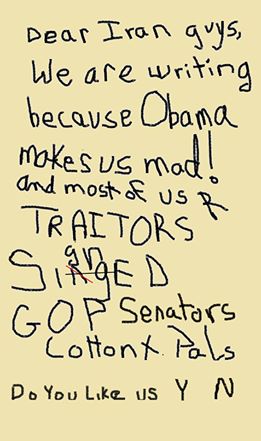 Dear Iran guys,
We are writing
because Obama
makes us mad!
and most of us R
TRAITORS
SIgnED
GOP Senators
Cotton & Pals
Do You Like us Y N